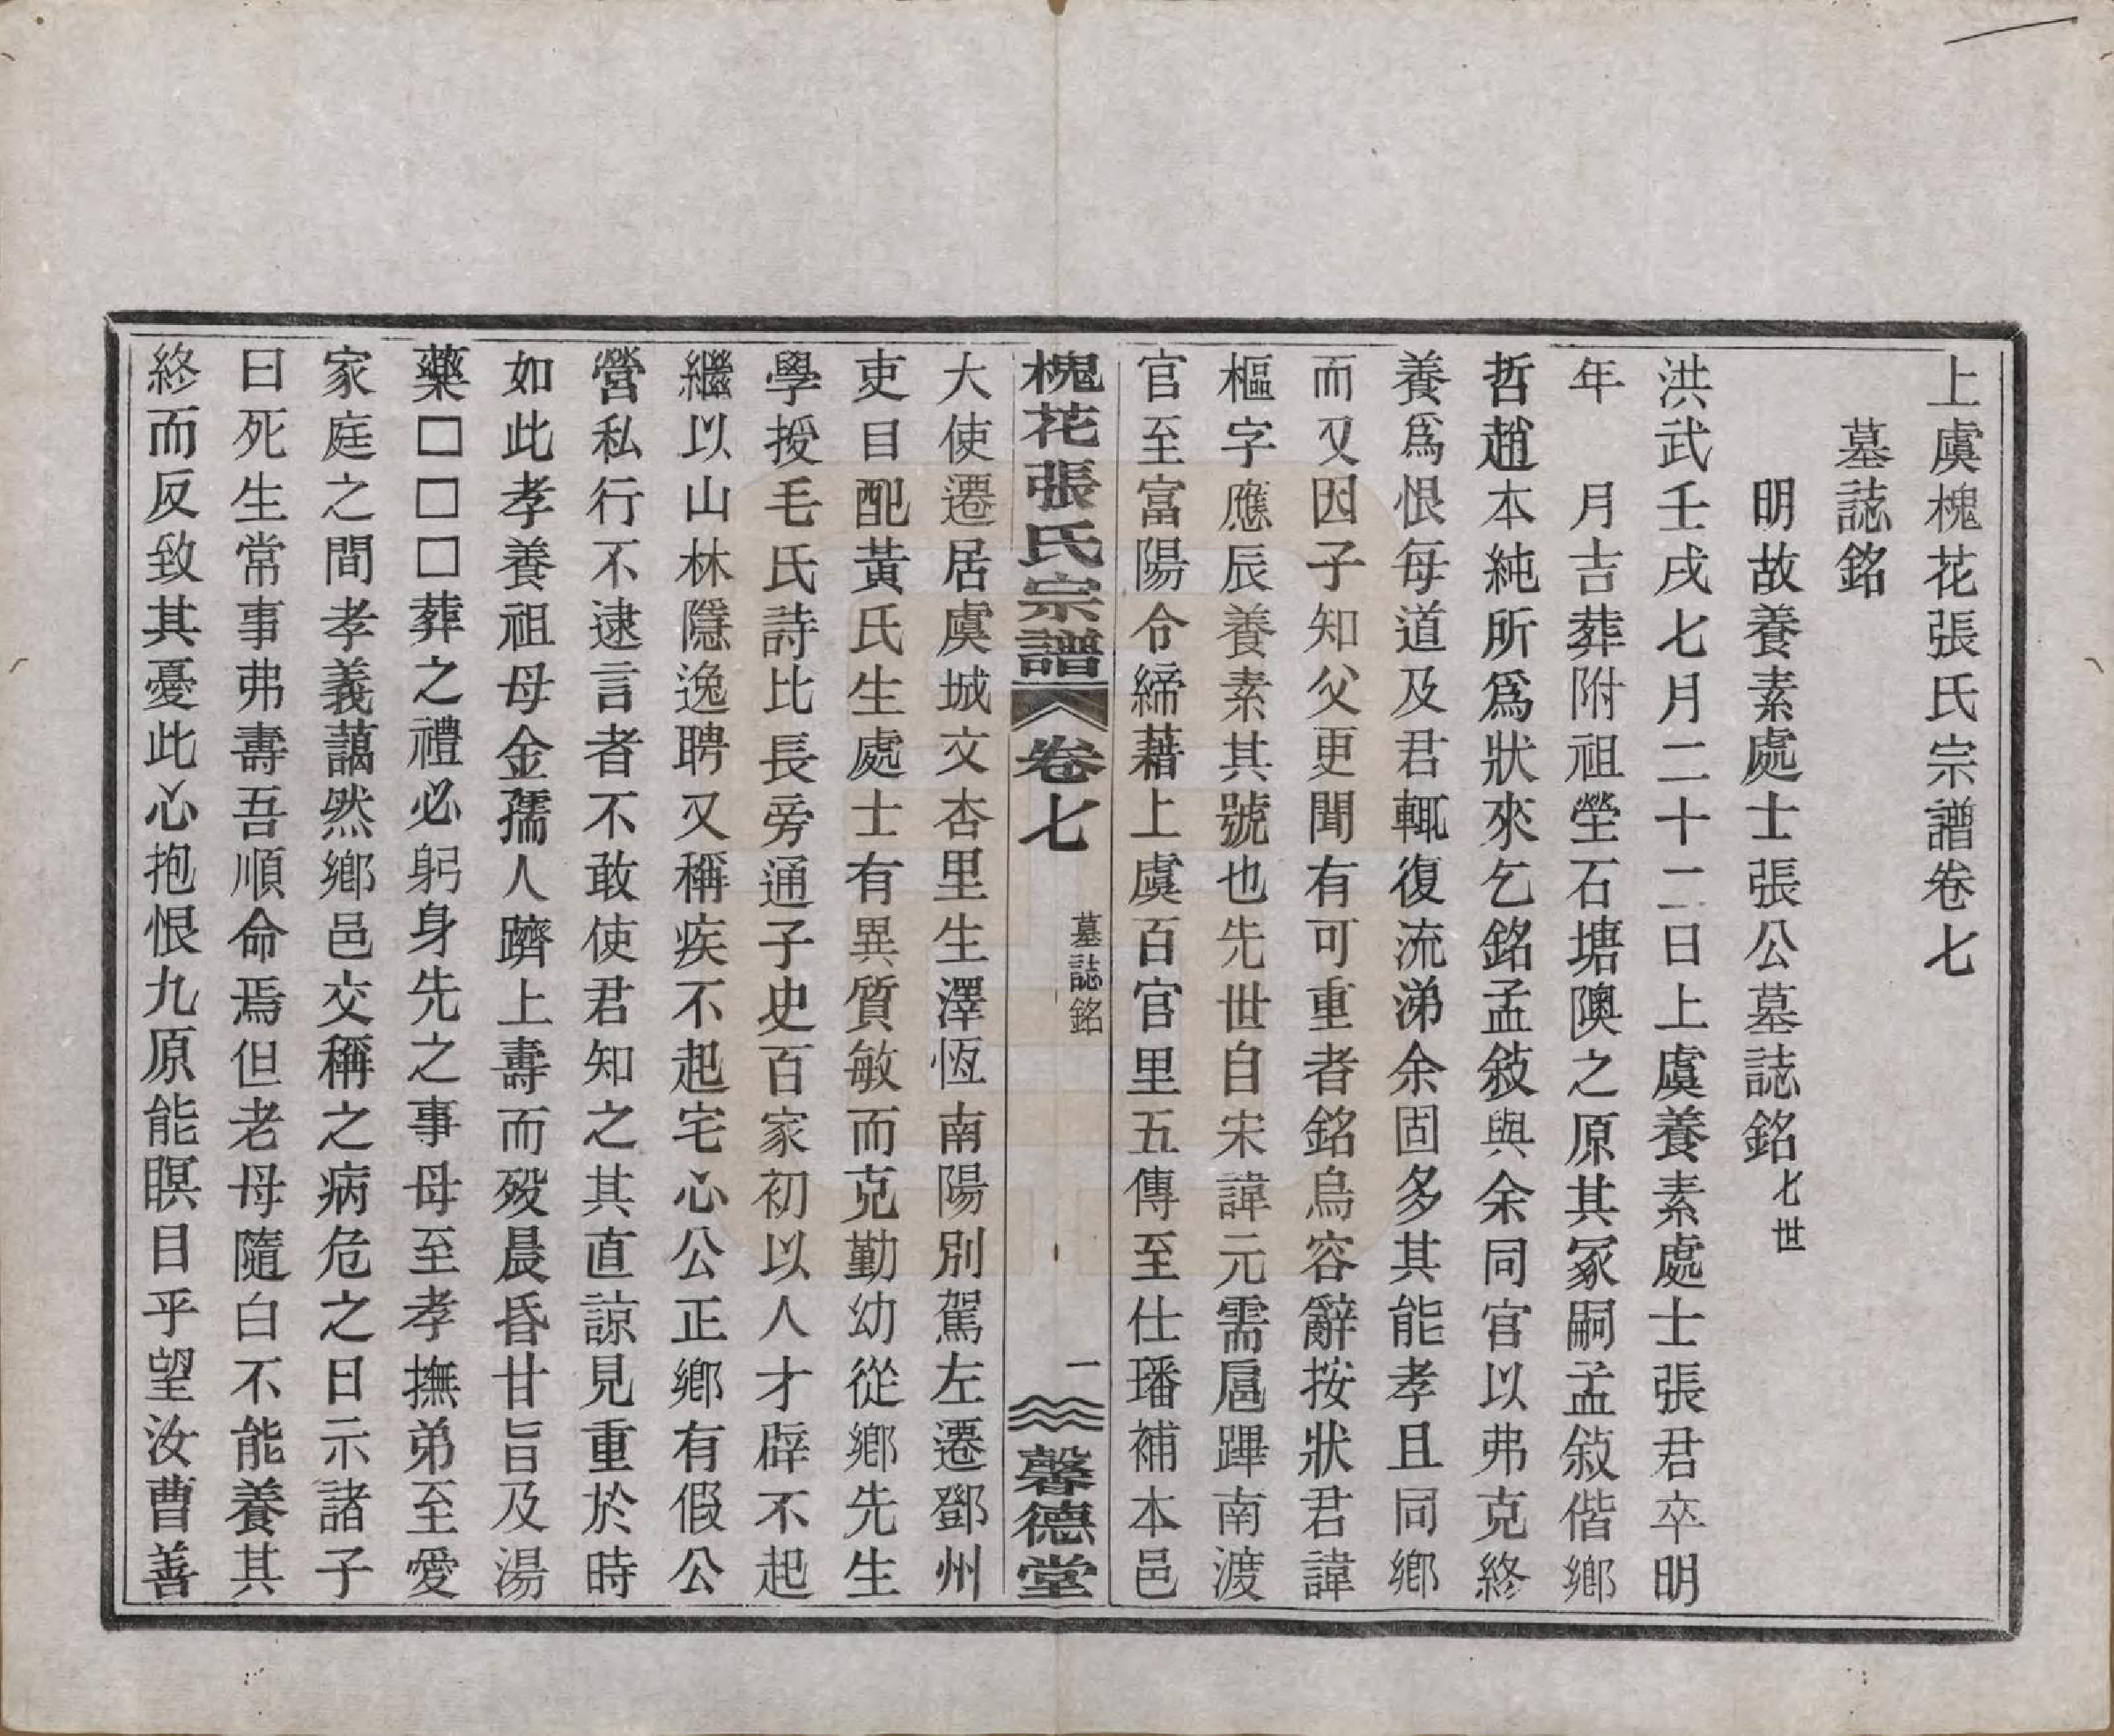 上虞槐花張氏宗譜卷七
墓誌銘
明故養素處士張公墓誌銘七世
洪武壬戌七月二十二日上虞養素處士張君卒明
年　月吉葬附祖塋石塘隩之原其冢嗣孟敍偕鄉
哲趙本純所爲狀來乞銘孟敍與余同官以弗克終
養爲恨每道及君輒復流涕余固多其能孝且同鄉
而又因子知父更聞有可重者銘烏容辭按狀君諱
樞字應辰養素其號也先世自宋諱元需扈蹕南渡
官至富陽令締藉上虞百官里五傳至仕璠補本邑
槐花張氏宗譜
卷七
墓誌銘
一
馨德堂
大使遷居虞城文杏里生澤恆南陽別駕左遷鄧州
吏目配黃氏生處士有異質敏而克勤幼從鄉先生
學授毛氏詩比長旁通子史百家初以人才辟不起
繼以山林隱逸聘又稱疾不起宅心公正鄉有假公
營私行不逮言者不敢使君知之其直諒見重於時
如此孝養祖母金孺人躋上壽而歿晨昏甘旨及湯
藥□□□葬之禮必躬身先之事母至孝撫弟至愛
家庭之間孝義藹然鄉邑交稱之病危之日示諸子
曰死生常事弗壽吾順命焉但老母隨白不能養其
終而反致其憂此心抱恨九原能瞑目乎望汝曹善